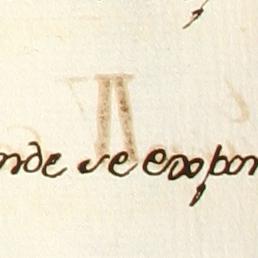 nde se expon